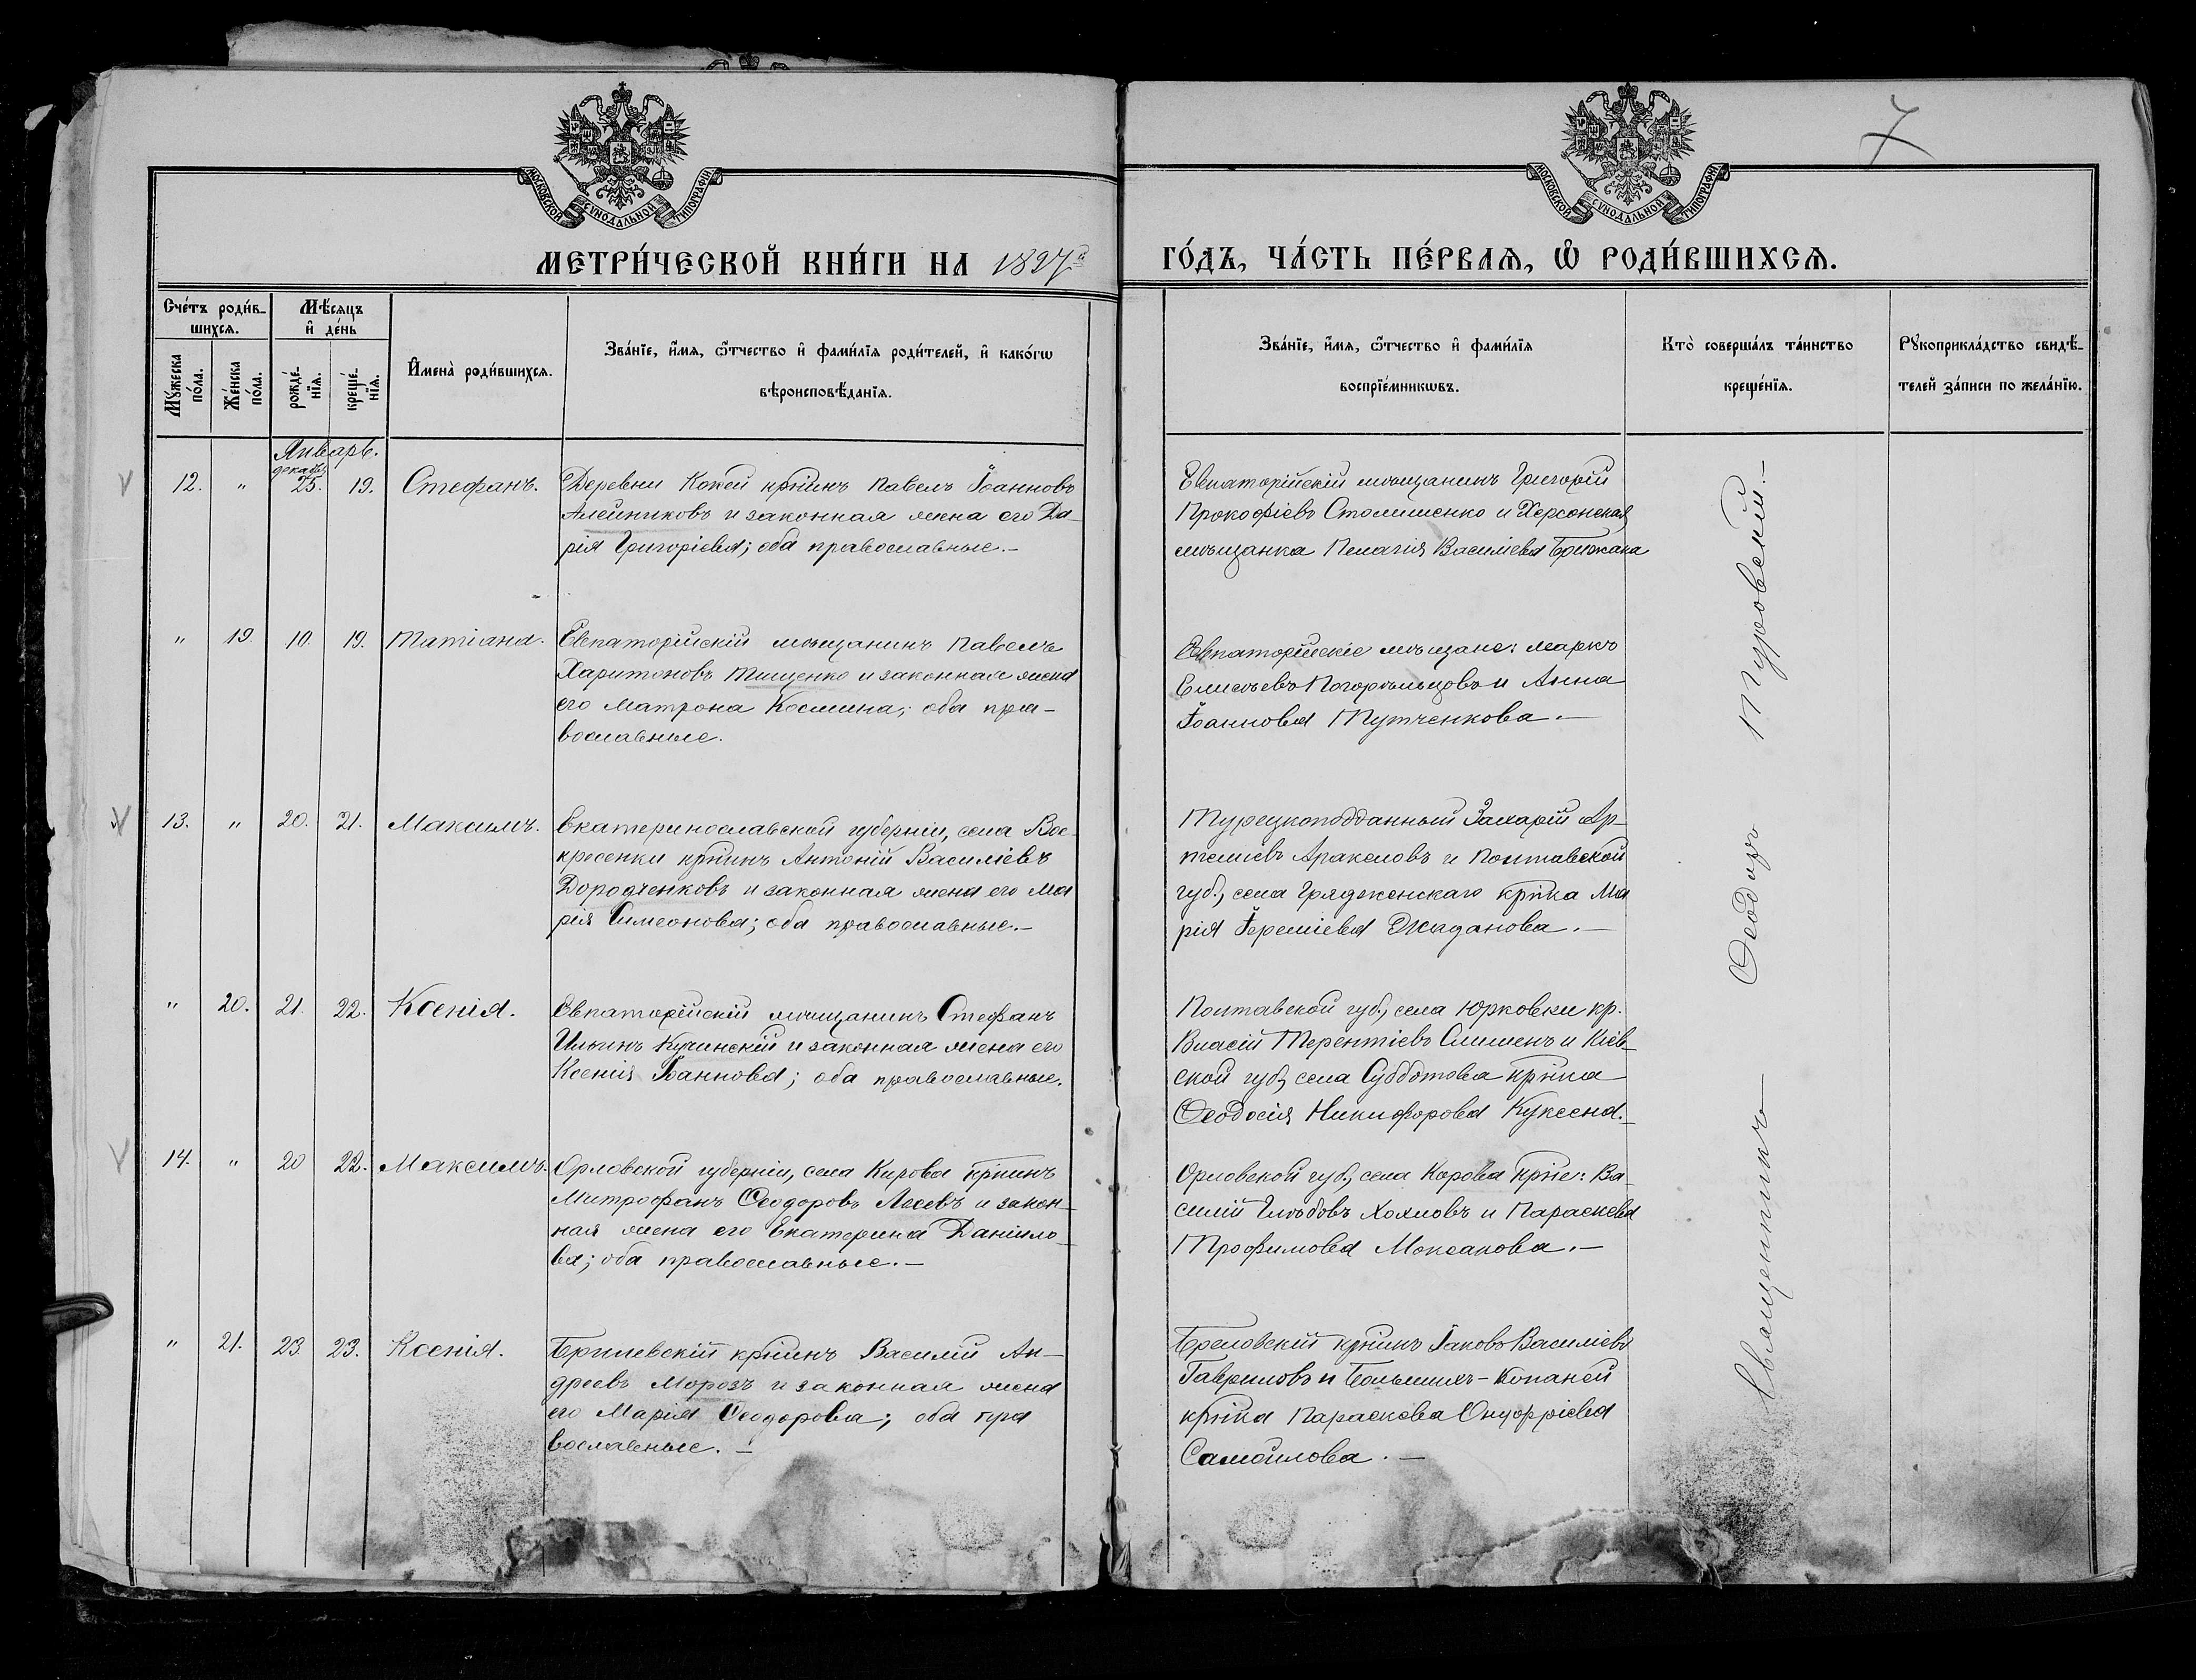 7
МОСКОВСКОЙ СѴНОДАЛЬНОЙ ТИПОГРАФІИ
МОСКОВСКОЙ СѴНОДАЛЬНОЙ ТИПОГРАФІИ
МЕТРИ́ЧЕСКОЙ КНИ́ГИ НА 1897й
ГО́ДЪ, ЧА́СТЬ ПЕ́РВАѦ, Ѡ҆ РОДИ́ВШИХСѦ.
Сче́тъ роди́в-
шихсѧ.
Мꙋ́жеска по́ла.
Же́нска по́ла.
Мѣ́сѧцъ
и҆ де́нь
рожде́-
нїѧ.
креще́-
нїѧ.
И҆мена̀ роди́вшихсѧ.
Зва́нїе, и҆́мѧ, ѻ҆́тчество и҆ фами́лїѧ роди́телей, и҆ како́гѡ
вѣроисповѣ́данїѧ.
Зва́нїе, и҆́мѧ, ѻ҆́тчество и҆ фами́лїѧ
воспрїе́мникѡвъ.
Кто̀ соверша́лъ та́инство
креще́нїѧ.
Рꙋкоприкла́дство свидѣ́-
телей за́писи по жела́нїю.
Январь.
декабр.
12. " 25. 19. Стефанъ. Деревни Копей кр̃нинъ Павелъ Іоанновъ
Алейниковъ и законная жена его Да-
рія Григоріева; оба православные.-
Евпаторійскій мѣщанинъ Григорій
Прокофіевъ Столишенко и Херсонская
мѣщанка Пелагія Василіева
" 19 10. 19. Татіана. Евпаторійскій мѣщанинъ Павелъ
Харитоновъ Тищенко и законная жена
его Матрона Космина; оба пра-
вославные.
Евпаторійскіе мѣщане: Маркъ
Елисѣевъ Погорѣльцовъ и Анна
Іоаннова Тутченкова.-
13. " 20. 21. Максимъ. Екатеринославской губерніи, села Вос-
кресенки кр̃нинъ Антоній Василіевъ
Дородченковъ и законная жена его Ма
рія Симеонова; оба православные.-
Турецкоподданный Захарій Ар-
темievъ Аракеловъ и Полтавской
губ., села кр̃нка Ма
рія Іереміева Жаданова.-
" 20. 21. 22. Ксенія. Евпаторійскій мѣщанинъ Стефанъ
Ильинъ Кучинскій и законная жена его
Ксенія Іоаннова; оба православные.
Полтавской губ., села Юрковки кр.
Власій Терентіевъ Слишенъ и Кіев-
ской губ., села Субботова кр̃нка
Ѳеодосія Никифорова Куксена.-
14. " 20 22. Максимъ. Орловской губерніи, села Кирова кр̃нинъ
Митрофанъ Ѳеодоровъ и закон-
ная жена его Екатерина Даніило-
ва; оба православные.-
Орловской губ., села Корова кр̃не: Ва-
силій Глѣбовъ Хохловъ и Параскева
Трофимова Моксакова.-
" 21. 23. 23. Ксенія. Брилевскій кр̃нинъ Василій Ан-
дреевъ Морозъ и законная жена
его Марія Ѳеодорова; оба пра
вославные.-
кр̃нинъ Іаковъ Василіевъ
Гавриловъ и Большихъ-Копаней
кр̃нка Параскева Онуфріева
Самойлова.-
Священникъ Ѳеодоръ Туровскій.-